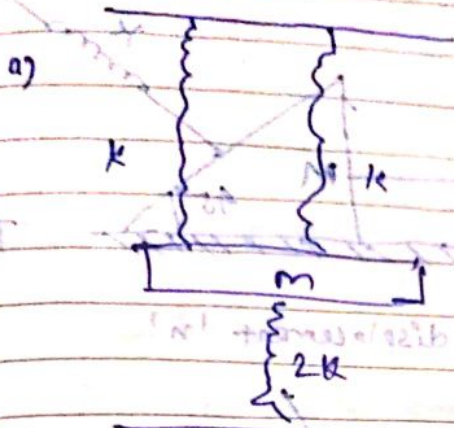 a)
k
k
m
2k